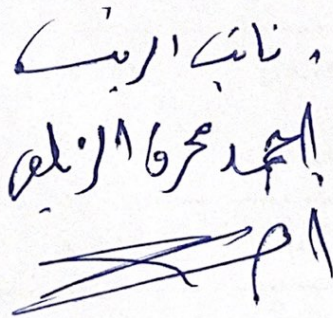 نائب الرئيس
احمد عمر الزيلعي